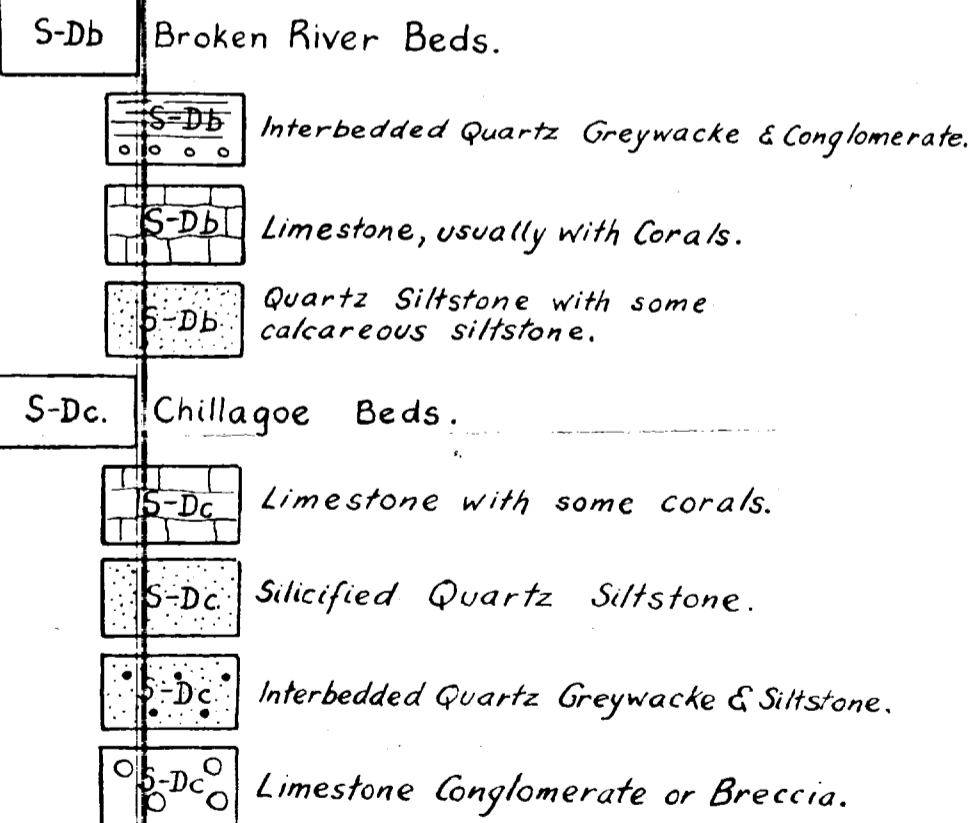 S-Db Broken River Beds.
S-Db Interbedded Quartz Greywacke & Conglomerate.
S-Db Limestone, usually with Corals.
S-Db Quartz Siltstone with some
calcareous siltstone.
S-Dc. Chillagoe Beds.
S-Dc Limestone with some corals.
S-Dc Silicified Quartz Siltstone.
S-Dc Interbedded Quartz Greywacke & Siltstone.
S-Dc Limestone Conglomerate or Breccia.